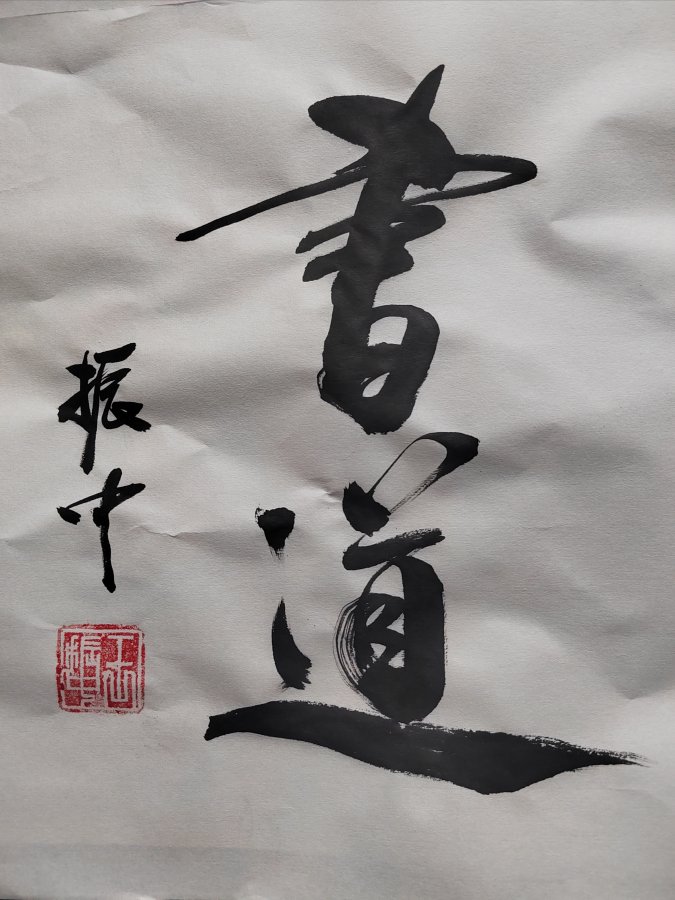 書道
振中